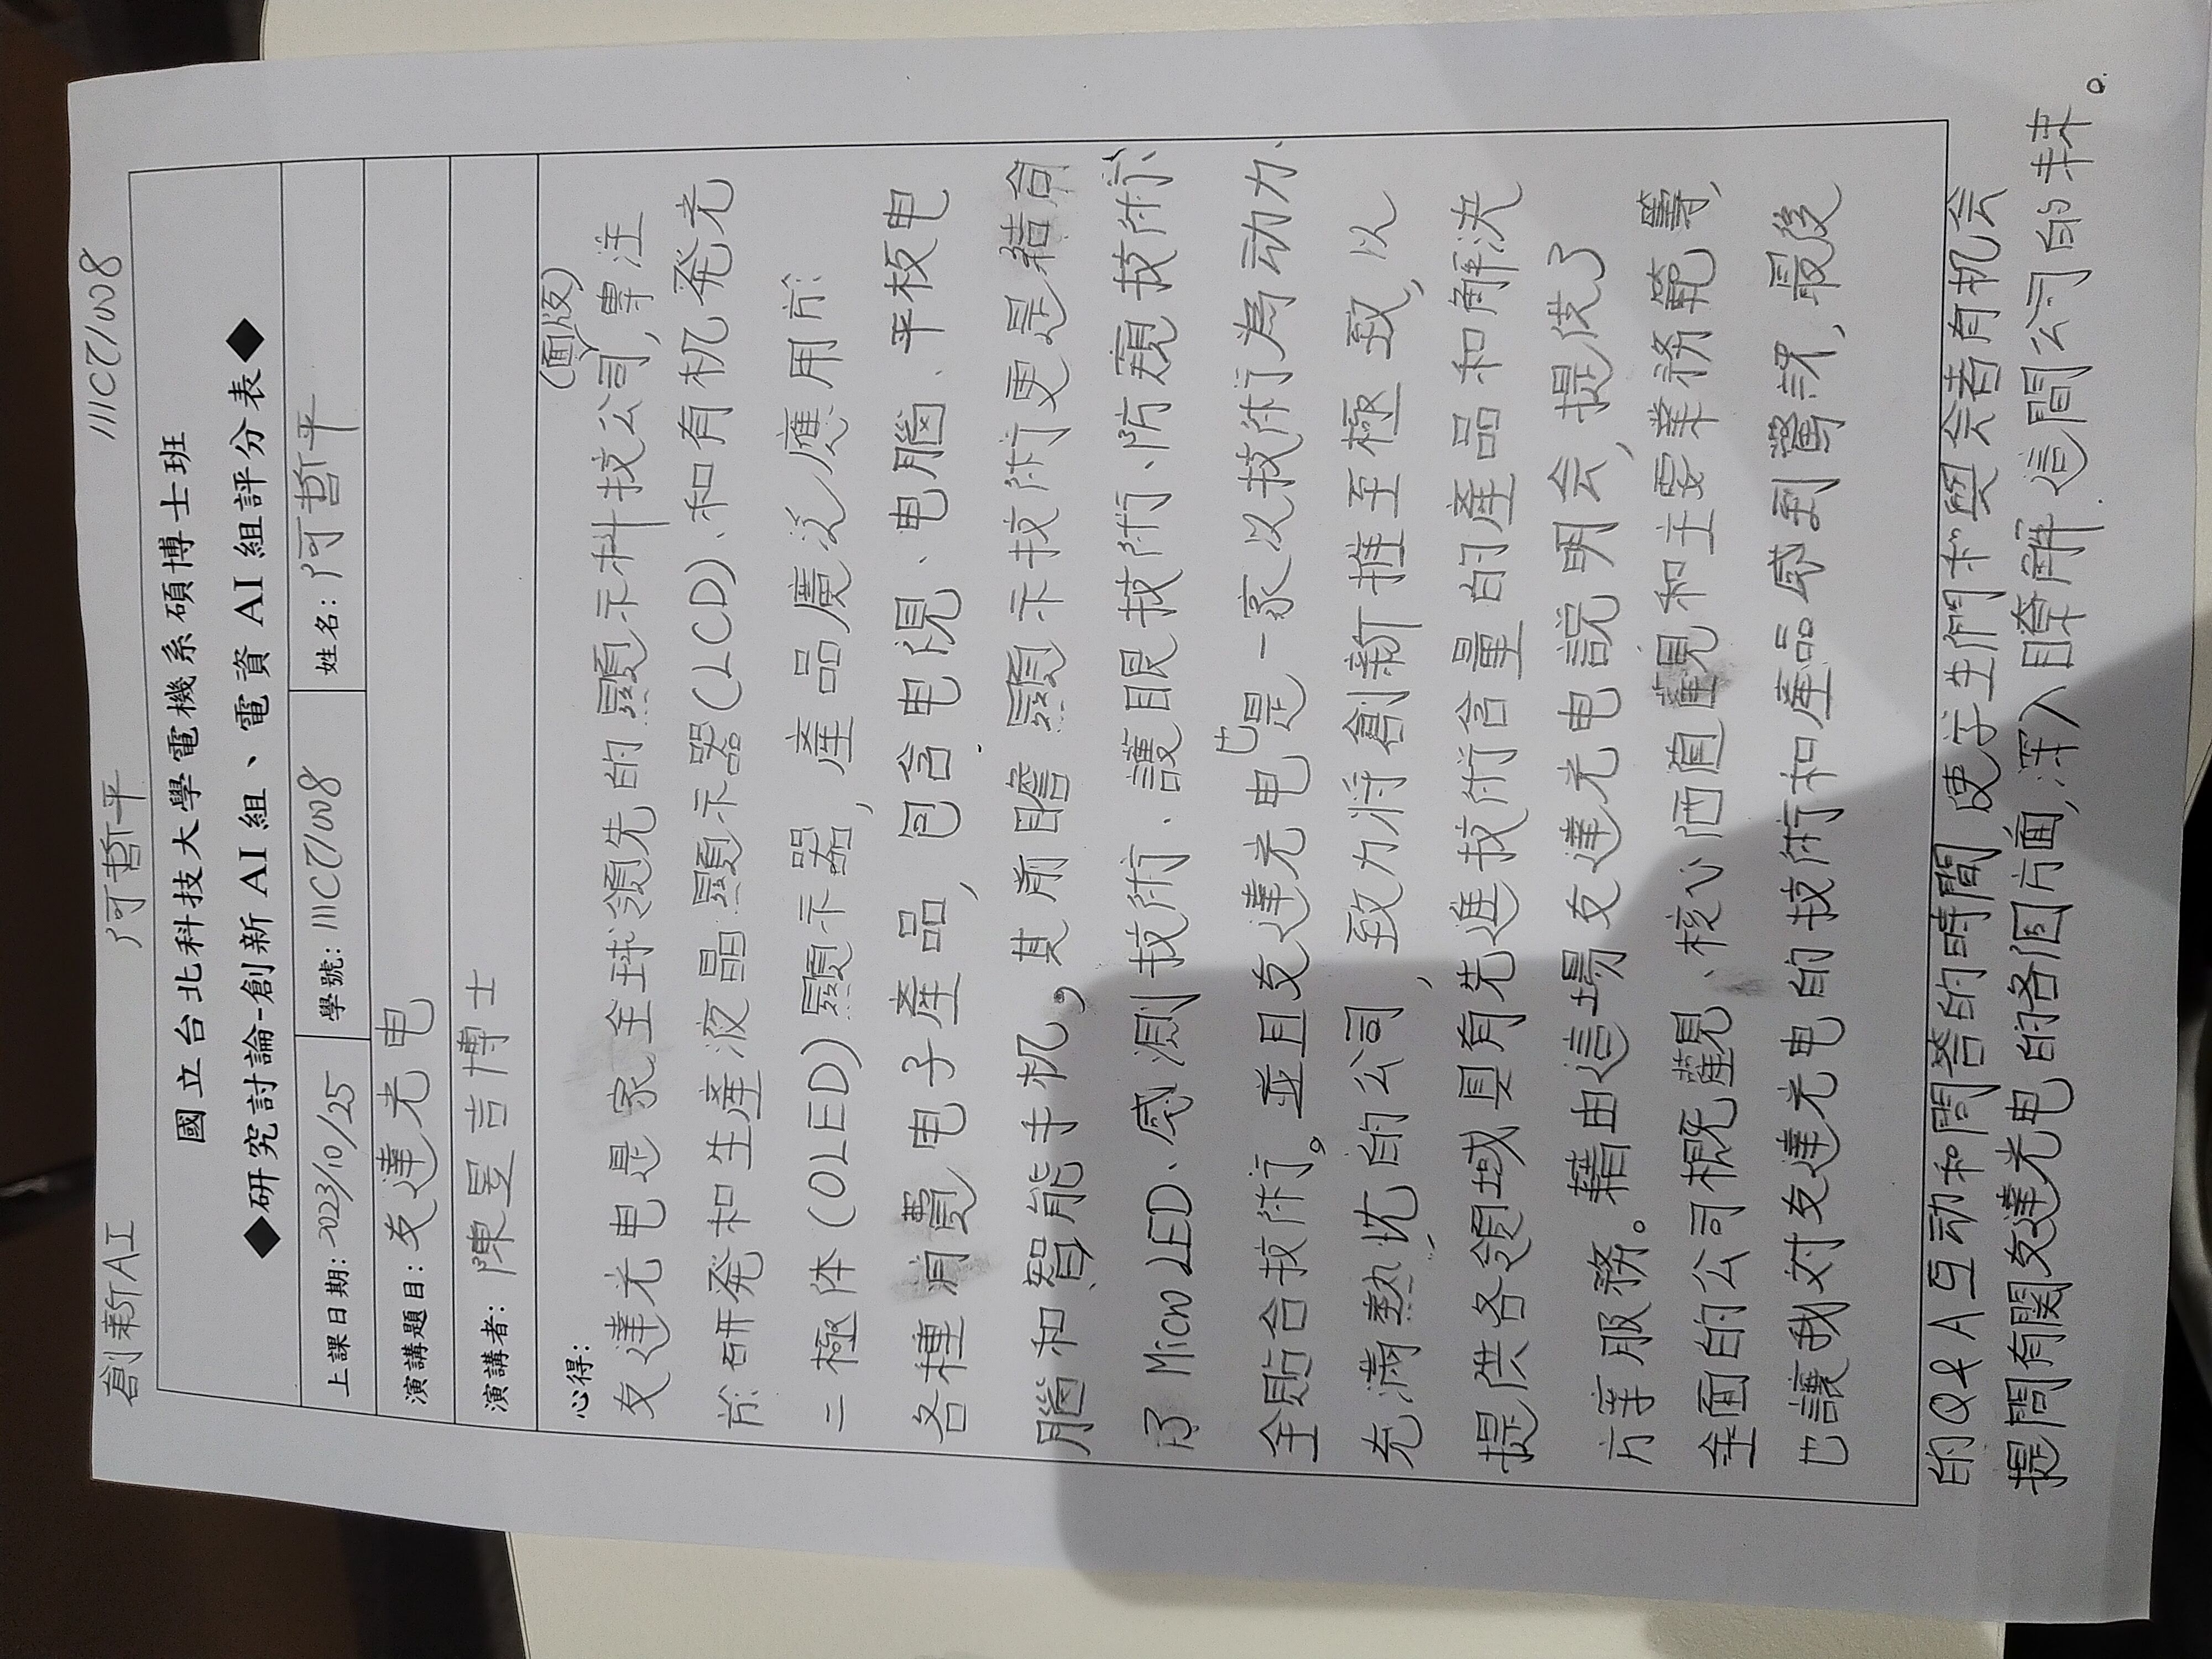 創新AI 阿哲平 111C71008
國立台北科技大學電機系碩博士班
◆研究討論-創新 AI 組、電資 AI 組評分表◆
上課日期: 2023/10/25 學號: 111C71008 姓名: 阿哲平
演講題目: 友達光电
演講者: 陳昱吉博士
(面版)
心得:
友達光电是家全球領先的顯示科技公司,專注
於研発和生產液晶顯示器(LCD)、和有机発光
二極体(OLED)顯示器,產品廣泛應用於
各種消費电子產品,包含电視、电腦、平板电
腦和智能手机,其前瞻顯示技術更是結合
了 Micro LED、感測技術、護眼技術、防窺技術、
全貼合技術。並且友達光电也是一家以技術為动力、
充滿熱忱的公司,致力將創新推至極致,以
提供各領域具有先進技術含量的產品和解決
方案服務。藉由這場友達光电説明会,提供了
全面的公司概観、核心価值觀和主要業務範籌,
也讓我対友達光电的技術和產品感到驚訝,最後
的Q&A互动和問答的時間 使学生們和與会者有机会
提問有関友達光电的各個方面,深入瞭解這間公司的未來。